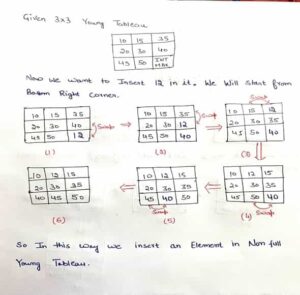 Given 3x3 Young Tableau
10 15 35
20 30 40
45 50 INT MAX
Now we want to Insert 12 in it. We Will Start from
Bottom Right Corner.
Swap
10 15 35
20 30 40
45 50 12
Swap
(1)
10 15 35
20 30 12
45 50 40
Swap
(2)
10 15 12
20 30 35
45 50 40
(3)
10 12 15
20 30 35
40 45 50
(6)
10 12 15
20 30 35
45 40 50
Swap
(5)
10 12 15
20 30 35
45 50 40
(4) Swap
So In this way we insert an Element in Non full
Young Tableau.